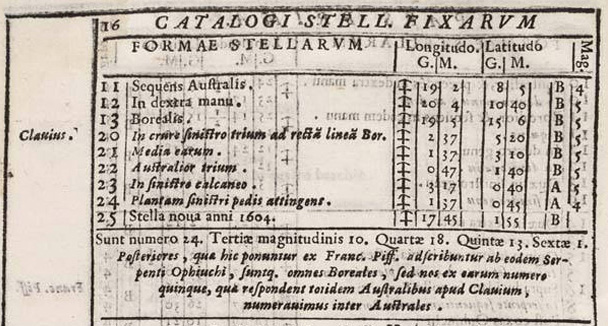 16 CATALOGI STELL. FIXARVM
FORMAE STELLARVM Longitudo. Latitudo Mag.
G. M. G. M.
11 Sequens Australis. ♐ 19 2 8 5 B 4
12 In dextra manu. ♐ 20 4 10 40 B 5
13 Borealis. ♐ 19 5 15 6 B 5
Clauius. 20 In crure sinistro trium ad rectā lineā Bor. ♐ 2 37 5 20 B 5
21 Media earum. ♐ 1 37 3 10 B 5
22 Australior trium. ♐ 0 47 1 40 B 5
23 In sinistro calcaneo. ♐ 3 17 0 40 A 5
24 Plantam sinistri pedis attingens. ♐ 1 37 0 45 A 4
25 Stella noua anni 1604. ♐ 17 45 1 55 B
Sunt numero 24. Tertiæ magnitudinis 10. Quartæ 18. Quintæ 13. Sextæ 1.
Posteriores, quæ hic ponuntur ex Franc. Piff. adscribuntur ab eodem Ser-
penti Ophiuchi, suntq. omnes Boreales, sed nos ex earum numero
quinque, quæ respondent totidem Australibus apud Clauium,
numerauimus inter Australes.